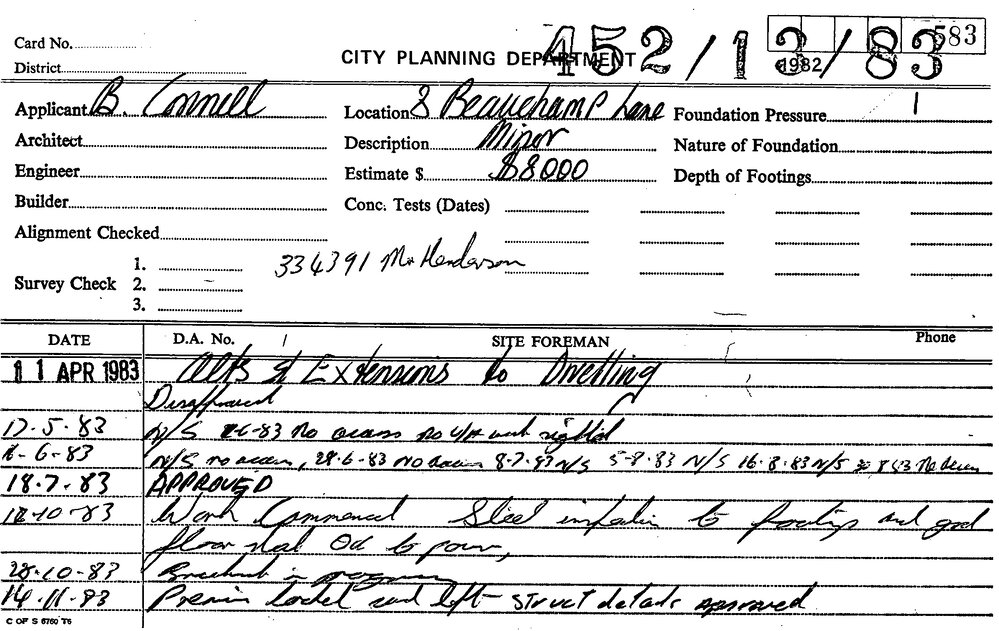 Card No.
District
CITY PLANNING DEPARTMENT 452/13/83 583
1982
Applicant B. Connell Location 8 Beauchamp Lane Foundation Pressure
Architect Description Minor Nature of Foundation
Engineer Estimate $ $8000 Depth of Footings
Builder Conc. Tests (Dates)
Alignment Checked
334391 Mr Henderson
Survey Check 1.
2.
3.
DATE D.A. No. SITE FOREMAN Phone
11 APR 1983 Alts & Extensions to Dwelling
Disapproved
17.5.83 N/S 8-6-83 No access no work sighted
6-83 N/S no access, 28.6.83 no access 8.7.83 N/S 5-8.83 N/S 16.8.83 N/S 30 8 83 No access
18.7.83 APPROVED
10-83 Work Commenced Steel in to footings and
floor slab OK to pour,
28.10-83 Brickwork in progress
14.11.83 Premises locked and left - struct details approved
C OF S 6760 T6